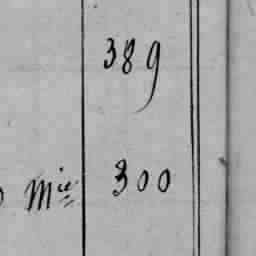 389
Mie 300